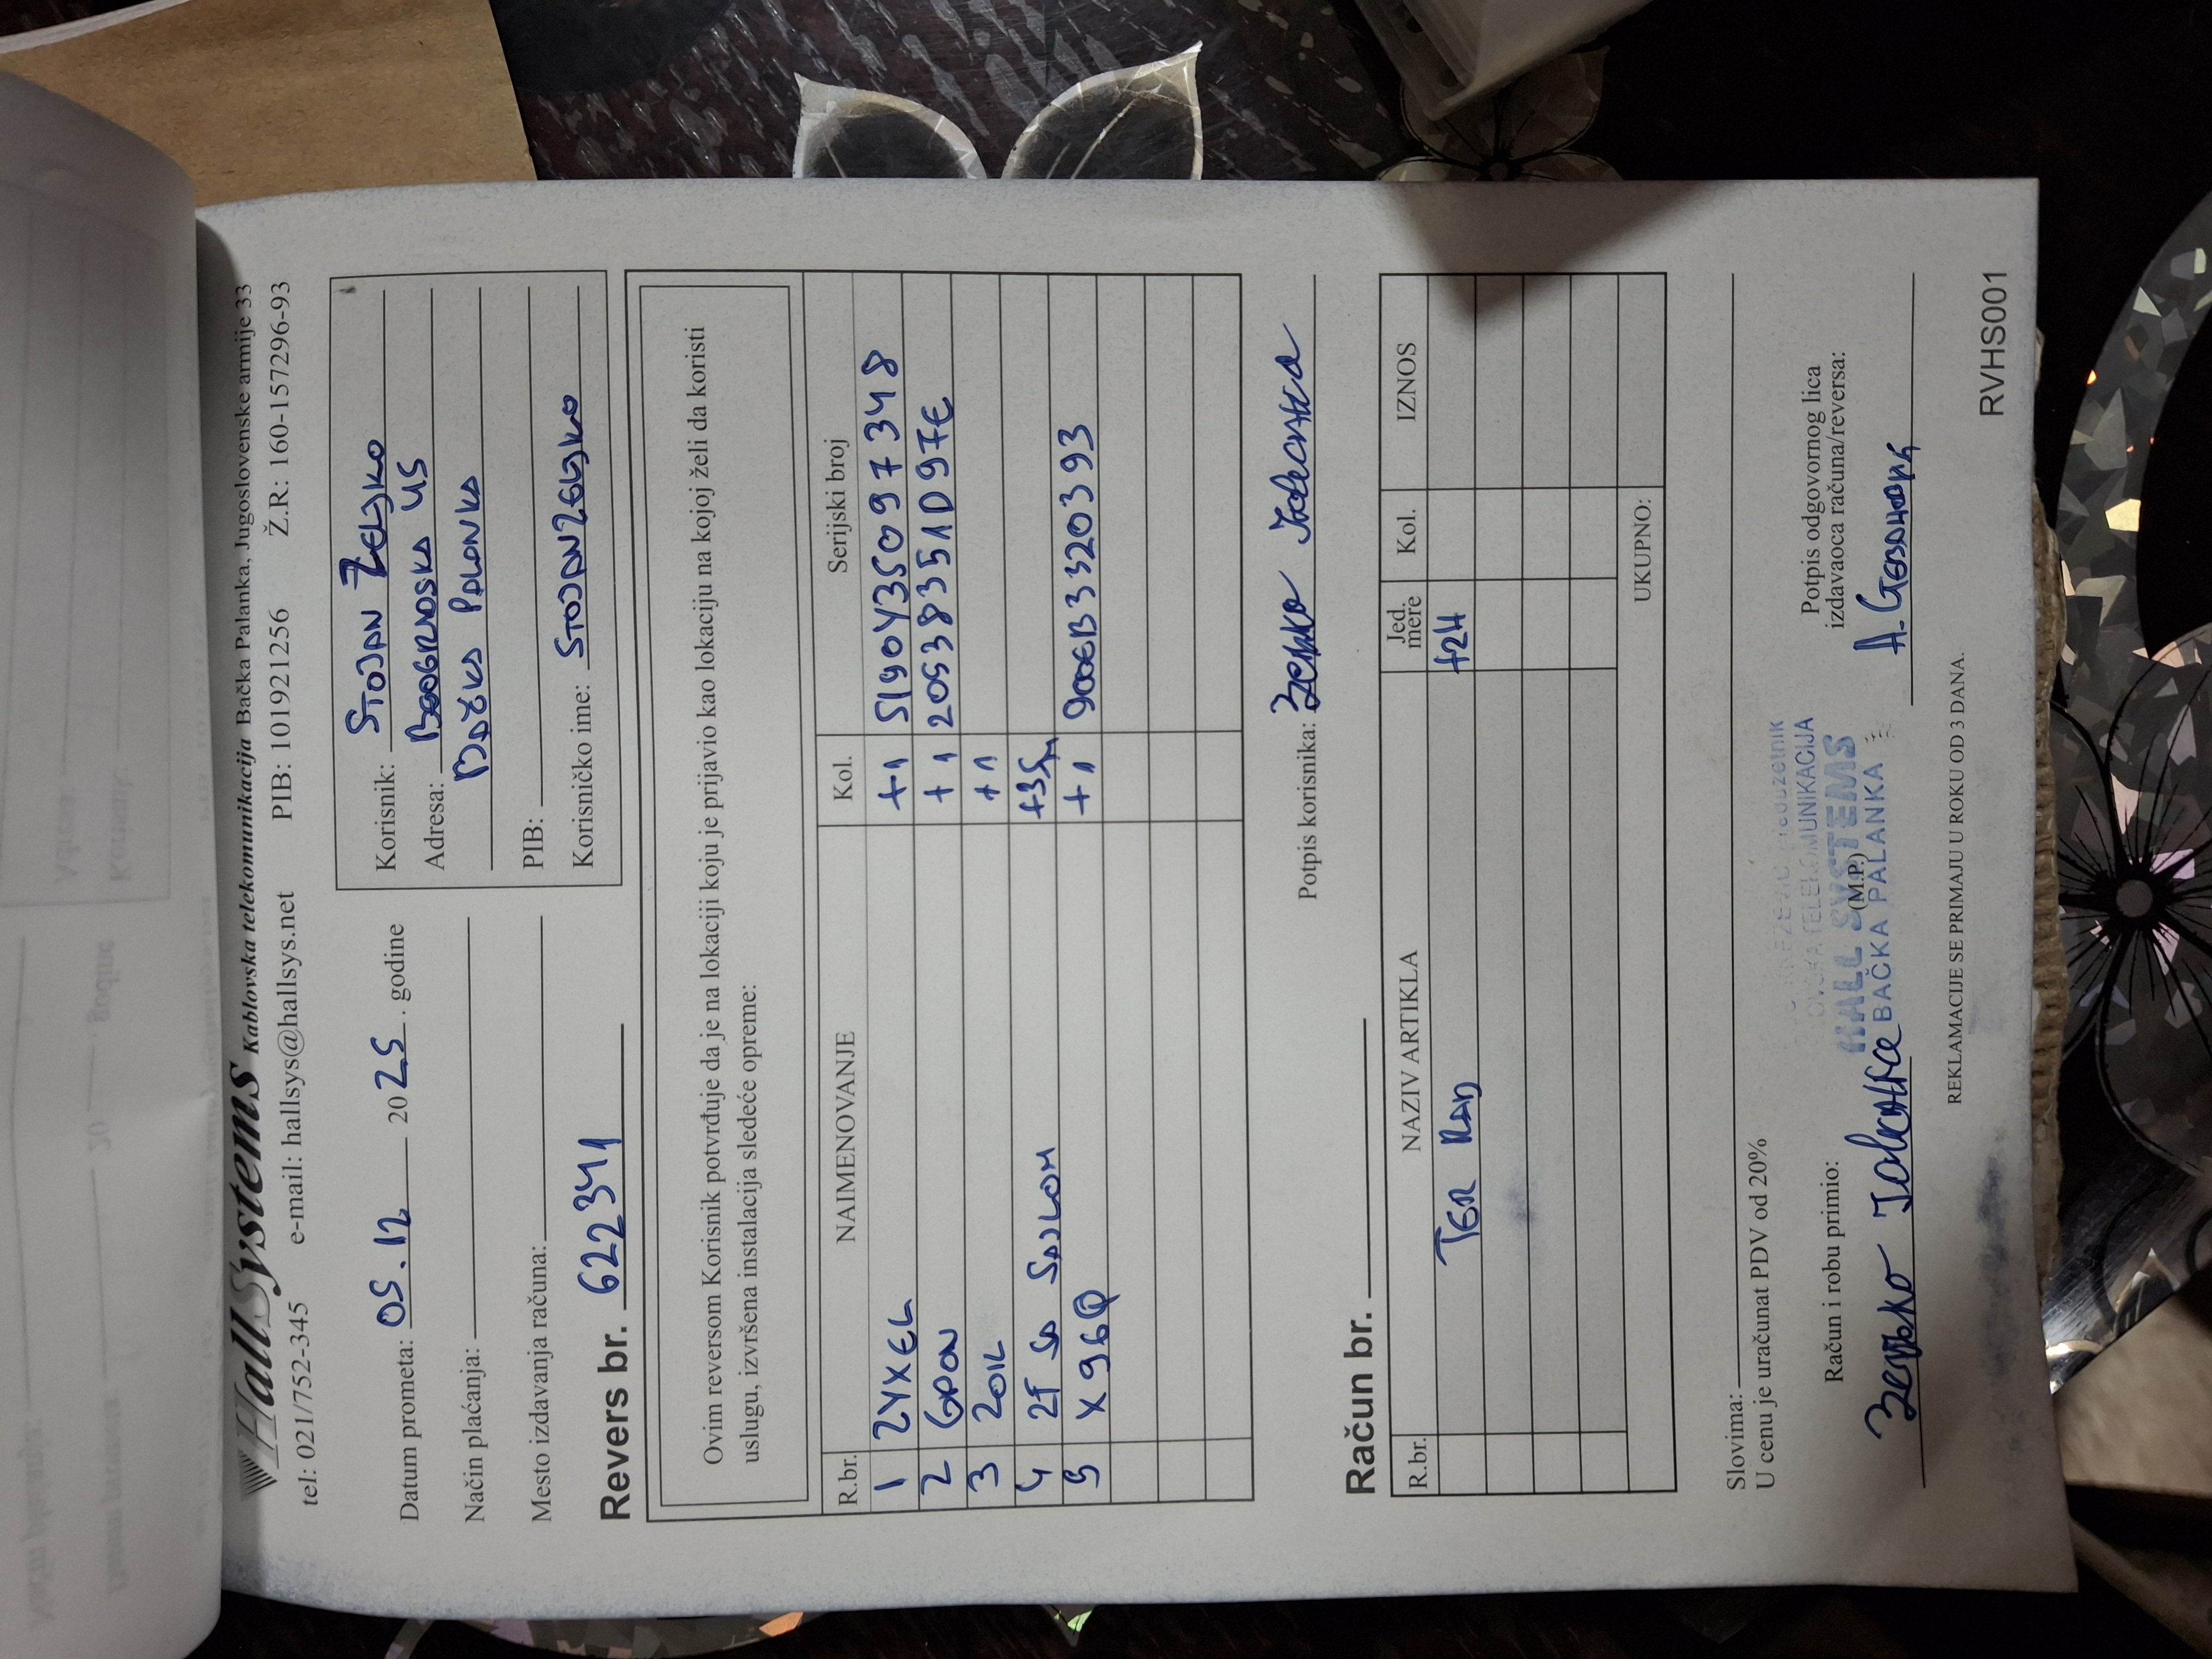 HallSystems Kablovska telekomunikacija Bačka Palanka, Jugoslovenske armije 33
tel: 021/752-345 e-mail: hallsys@hallsys.net PIB: 101921256 Ž.R: 160-157296-93
Datum prometa: 05.12 2025. godine
Način plaćanja:
Mesto izdavanja računa:
Revers br. 622341
Korisnik: STOJAN ŽELJKO
Adresa: 45
BAČKA PALANKA
PIB:
Korisničko ime: STOJANZELJKO
Ovim reversom Korisnik potvrđuje da je na lokaciji koju je prijavio kao lokaciju na kojoj želi da koristi
uslugu, izvršena instalacija sledeće opreme:
R.br. NAIMENOVANJE Kol. Serijski broj
1 ZYXEL +1 S190Y35097348
2 GPON +1 20538351D97E
3 ZOIL +1
4 2F SA SAJLOM +35M
5 X96Q +1 900EB3320393
Potpis korisnika:
Račun br.
R.br. NAZIV ARTIKLA Jed. mere Kol. IZNOS
TER RAD +2H
UKUPNO:
Slovima:
U cenu je uračunat PDV od 20%
Račun i robu primio:
(M.P.)
Potpis odgovornog lica
izdavaoca računa/reversa:
TELEKOMUNIKACIJA
HALL SYSTEMS
BAČKA PALANKA
REKLAMACIJE SE PRIMAJU U ROKU OD 3 DANA.
RVHS001